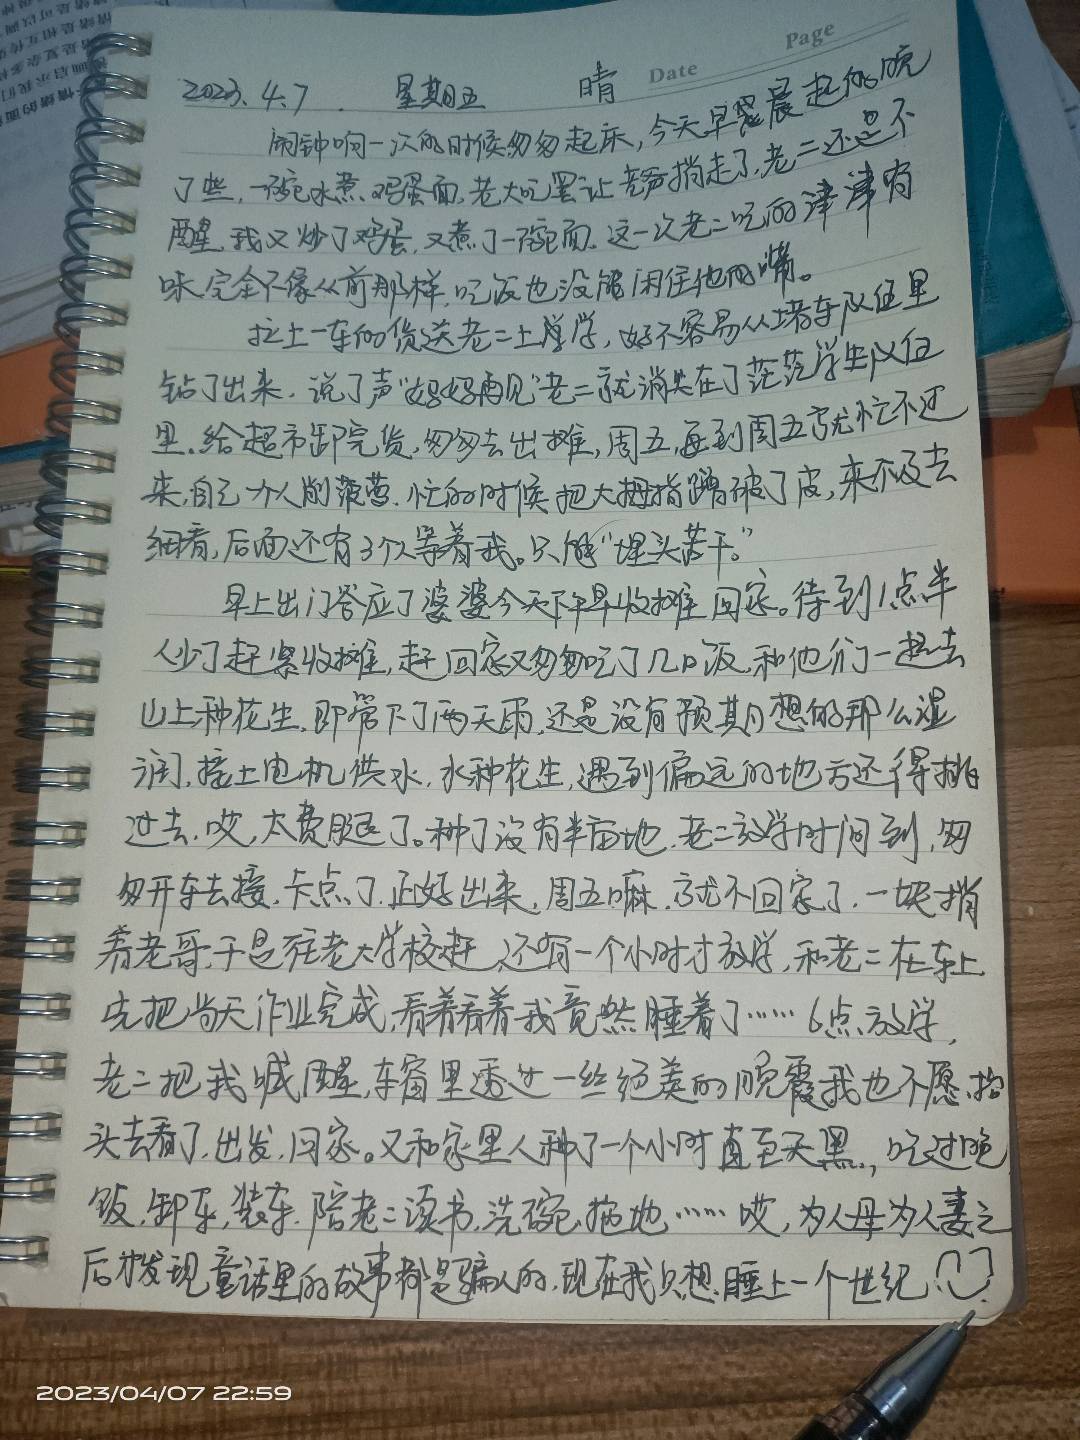 Page
Date
2023.4.7 星期五 晴
闹钟响一次的时候匆匆起床,今天早晨起的晚
了些,一碗水煮鸡蛋面,老大吃罢让爸爸捎走了,老二还是不
醒,我又炒了鸡蛋,又煮了一碗面,这一次老二吃的津津有
味,完全不像从前那样,吃饭也没能闲住他的嘴。
拉上一车的货送老二上学,好不容易从堵车队伍里
钻了出来,说了声“妈妈再见”老二就消失在了茫茫学生队伍
里,给超市卸完货,匆匆去出摊,周五,每到周五就忙不过
来,自己个人削菠萝,忙的时候把大拇指蹭破了皮,来不及去
细看,后面还有3个人等着我。只能“埋头苦干”。
早上出门答应了婆婆今天下午早收摊回家。待到1点半
人少了赶紧收摊,赶回家又匆匆吃了几口饭,和他们一起去
山上种花生,即管下了两天雨,还是没有预期想的那么湿
润,接上电机供水,水种花生,遇到偏远的地方还得挑
过去,哎,太费腿了。种了没有半亩地,老二放学时间到,匆
匆开车去接,卡点了,正好出来,周五嘛,就不回家了,一块捎
着老哥,于是往老大学校赶,还有一个小时才放学,和老二在车上
先把当天作业完成,看着看着我竟然睡着了……6点放学,
老二把我喊醒,车窗里透过一丝绝美的晚霞我也不愿抬
头去看了,出发,回家。又和家里人种了一个小时直至天黑,吃过晚
饭,卸车,装车,陪老二读书,洗碗,拖地……哎,为人母为人妻之
后才发现童话里的故事都是骗人的,现在我只想睡上一个世纪!
2023/04/07 22:59